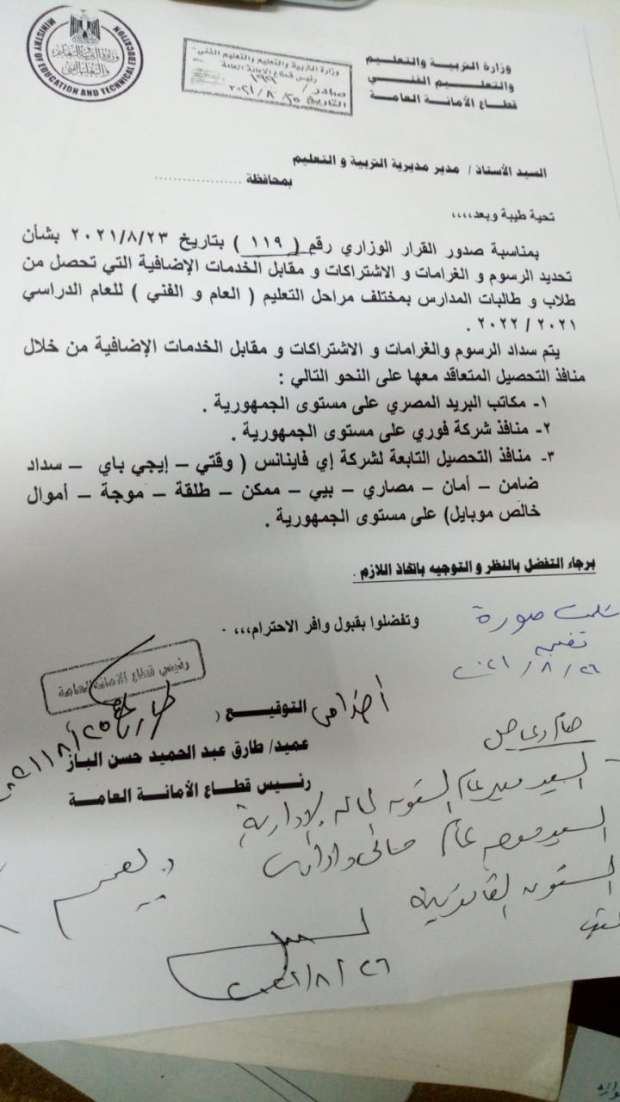 وزارة التربية والتعليم
والتعليم الفني
قطاع الأمانة العامة
MINISTRY OF EDUCATION AND TECHNICAL EDUCATION
وزارة التربية والتعليم والتعليم الفنى
رئيس قطاع الأمانة العامة
صادر / ١٩٩
التاريخ ٢٥ / ٨ / ٢٠٢١
السيد الأستاذ / مدير مديرية التربية و التعليم
بمحافظة ..................
تحية طيبة وبعد،،،،
بمناسبة صدور القرار الوزاري رقم ( ١١٩ ) بتاريخ ٢٠٢١/٨/٢٣ بشأن
تحديد الرسوم و الغرامات و الاشتراكات و مقابل الخدمات الإضافية التي تحصل من
طلاب و طالبات المدارس بمختلف مراحل التعليم ( العام و الفني ) للعام الدراسي
٢٠٢١ / ٢٠٢٢ .
يتم سداد الرسوم والغرامات و الاشتراكات و مقابل الخدمات الإضافية من خلال
منافذ التحصيل المتعاقد معها على النحو التالي :
١- مكاتب البريد المصري على مستوى الجمهورية .
٢- منافذ شركة فوري على مستوى الجمهورية .
٣- منافذ التحصيل التابعة لشركة إي فاينانس ( وقتي – إيجي باي – سداد
ضامن – أمان – مصاري – بيي – ممكن – طلقة – موجة – أموال
خالص موبايل) على مستوى الجمهورية .
برجاء التفضل بالنظر و التوجيه باتخاذ اللازم .
وتفضلوا بقبول وافر الاحترام،،، .
صورة
٢٠٢١/٨/٢٦
رئيس قطاع الأمانة العامة
التوقيع (
٢٠٢١/٨/٢٥
عميد/ طارق عبد الحميد حسن الباز
رئيس قطاع الأمانة العامة
السيد مدير عام الشئون المالية والإدارية
السيد
الشئون القانونية
٢٠٢١/٨/٢٦